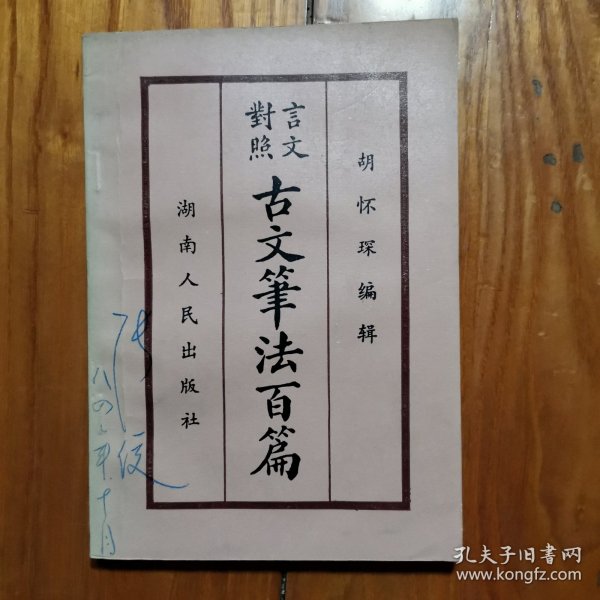 胡怀琛编辑
言文
對照
古文筆法百篇
湖南人民出版社
八四年十月
孔夫子旧書网
www.kongfz.com